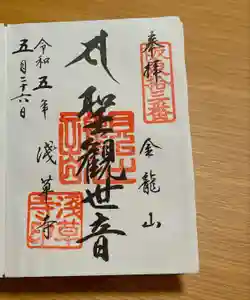 奉拝
坂東十三番
金龍山
聖観世音
浅草寺
令和五年
五月二十六日